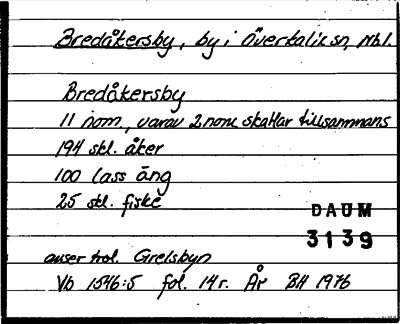 Bredåkersby, by i Överkalix sn, Nbl.
Bredåkersby
11 nom, varav 2 nom skattar tillsammans
194 skl. åker
100 lass äng
25 skl. fiske
DAUM
3139
avser trol. Grelsbyn
Vb 1546:5 fol. 14r. År BH 1976